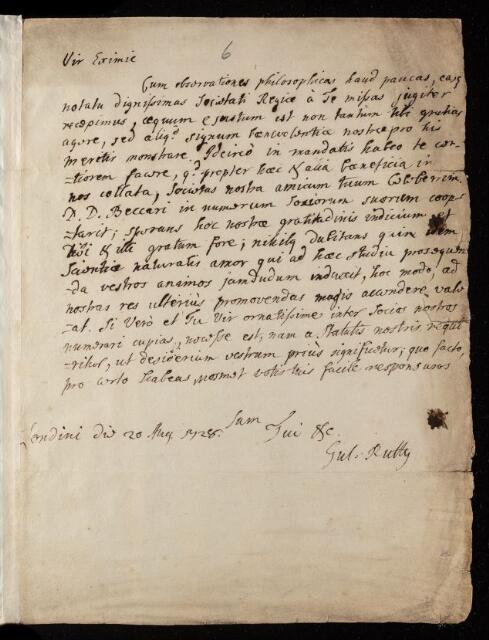 6
Vir Eximie
Cum observationes philosophicas haud paucas, easq
notatu dignissimas Societati Regiæ à Te missas jugiter
recepimus, æquum & justum est non tantum tibi gratias
agere, sed aliqd signum benevolentiæ nostræ pro his
meritis monstrare. Idcirò in mandatis habeo te cer-
-tiorem facere, qd propter hæc & alia beneficia in
nos collata, Societas nostra amicum tuum celeberrim.
D. D. Beccari in numerum Sociorum suorum coop-
-tarit; sperans hoc nostræ gratitudinis indicium et
tibi & illi gratum fore; nihilq dubitans quin idem
Scientiæ naturalis amor qui ad hæc studia prosequen-
-da vestros animos jamdudum induxit, hoc modo, ad
nostras res ulterius promovendas magis accendere vale-
-at. Si Verò et Tu Vir ornatissime inter Socios nostros
numerari cupias, necesse est, nam a Statutis nostris requi-
-ritur, ut desiderium vestrum priùs significetur; quo facto,
pro certo habeas, nosmet votis tuis facile responsuros
Sum
Londini die 20 Aug 1728. Tui &c.
Gul. Rutty